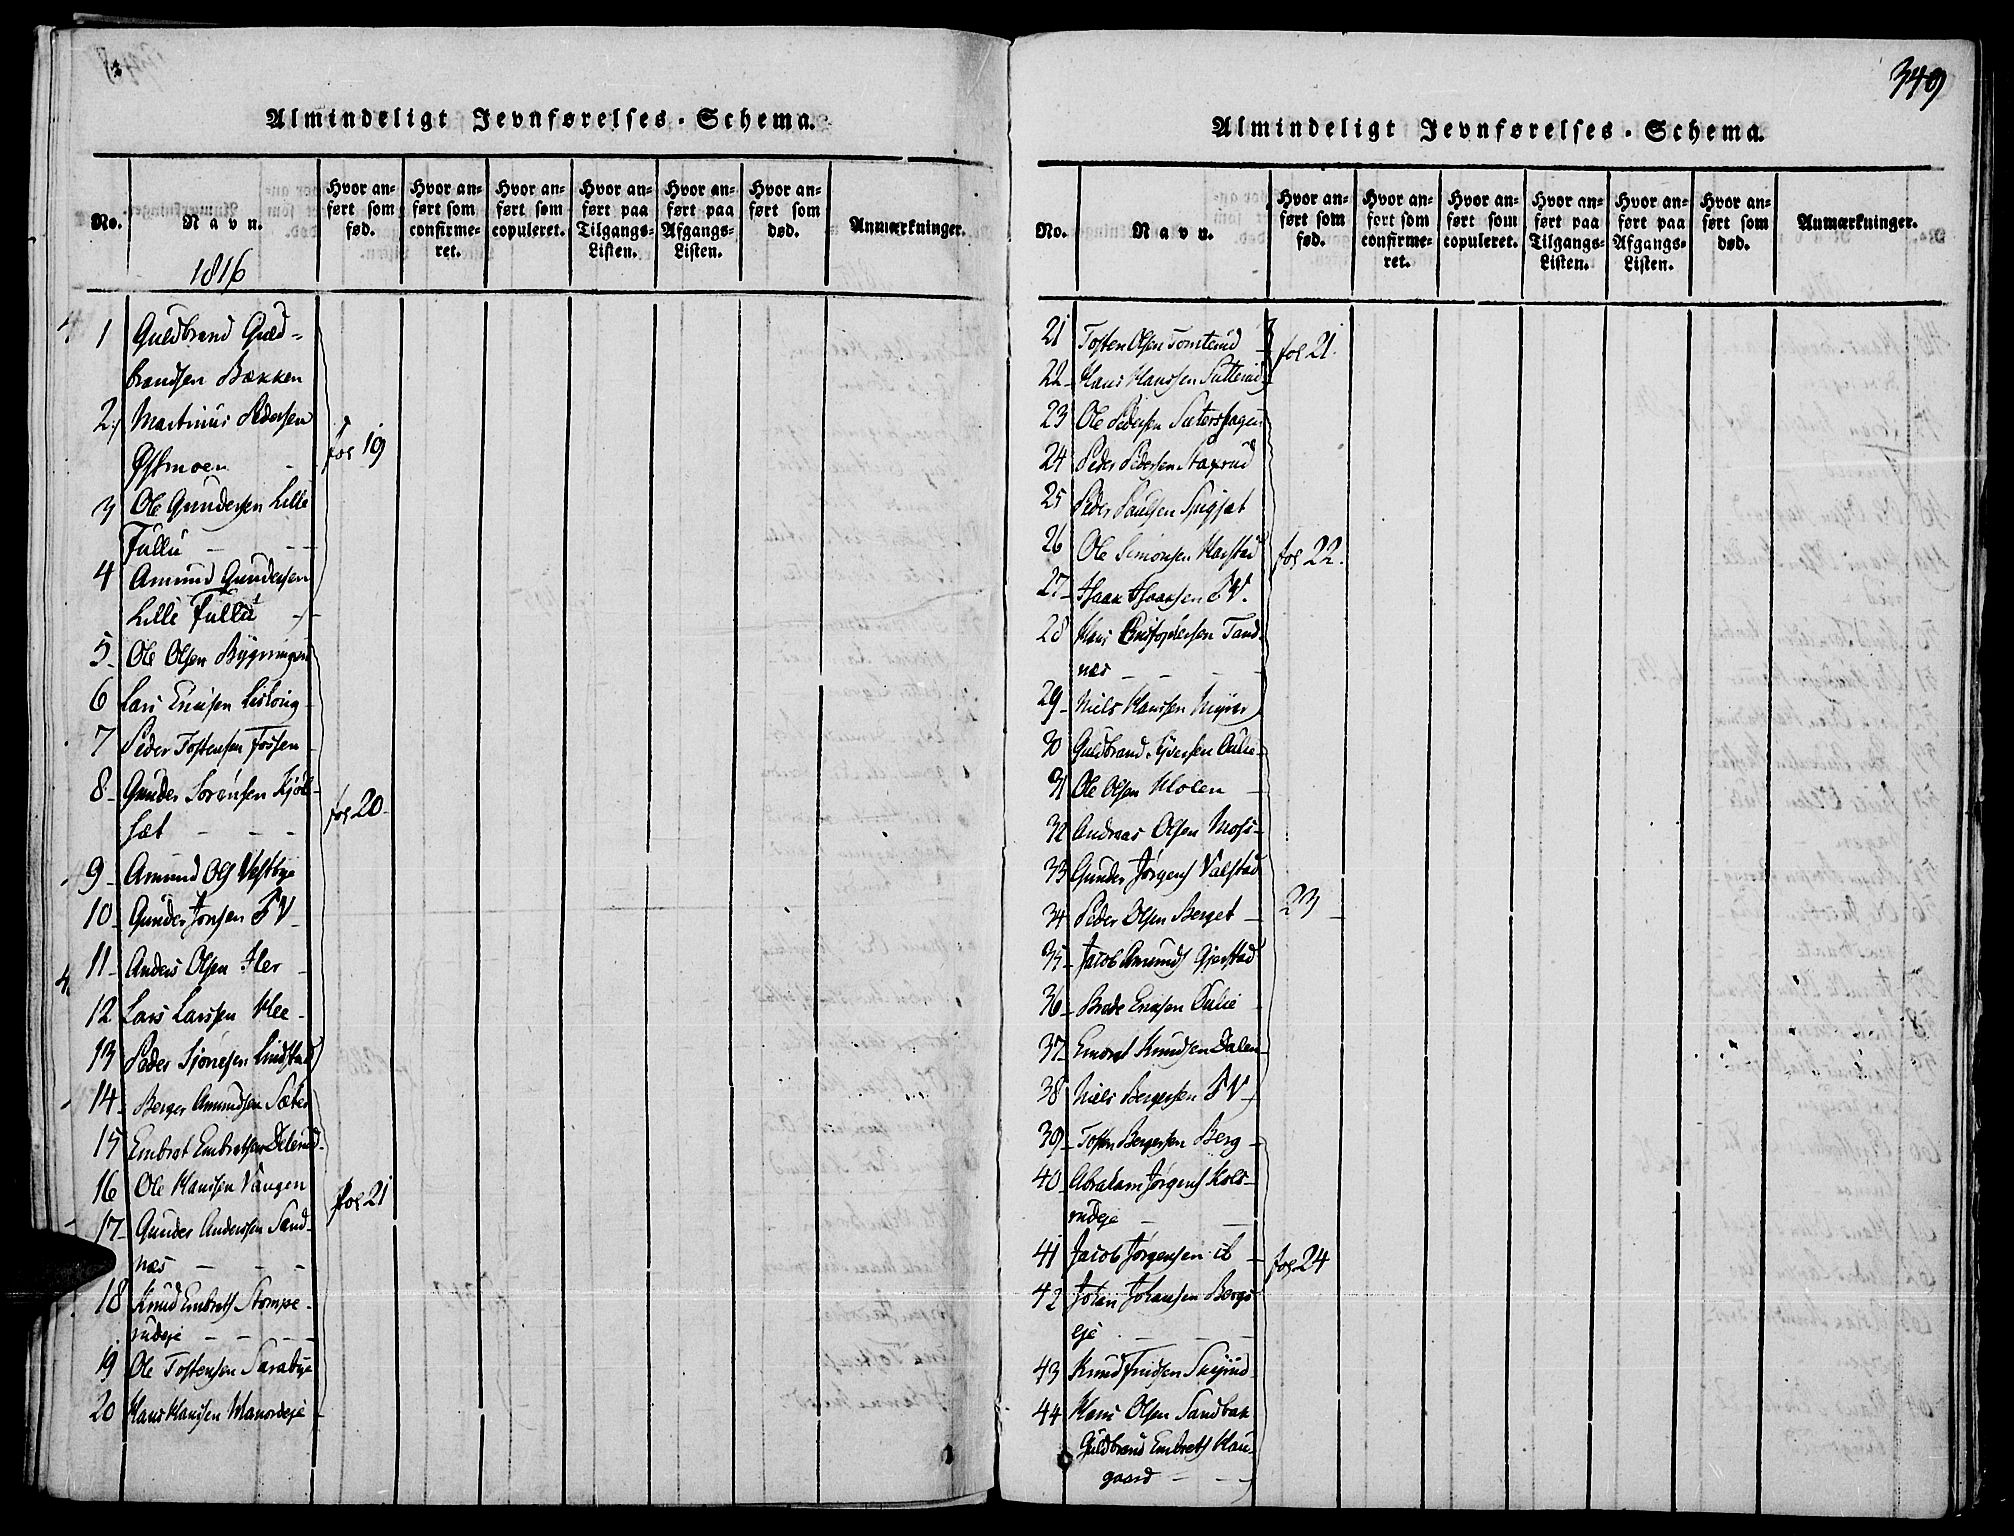 349
Almindeligt Jevnførelses-Schema.
No.
Navn.
Hvor anført som fød.
Hvor anført som confirmeret.
Hvor anført som copuleret.
Hvor anført paa Tilgangs-Listen.
Hvor anført paa Afgangs-Listen.
Hvor anført som død.
Anmærkninger.
1816
1 Guldbrand Guld-
brandsen Bækken
2 Martinus Pedersen
Østmoen - fol 19
3 Ole Gundersen Lille
Fullu - -
4 Amund Gundersen
Lille Fullu -
5 Ole Olsen Bygningen
6 Lars Ericsen
7 Peder Tostensen Fossen
8 Gunder Sørensen Kjøl-
sæt - - - fol 20
9 Amund Ols Vestbye
10 Gunder Jonsen
11 Anders Olsen
12 Lars Larssen Klee
13 Peder
14 Berger Amundsen Sæter
15 Embret Embretsen
16 Ole Hanssen Vangen fol 21
17 Gunder Anderssen Sand-
næs - - -
18 Knud Embrets Stompe-
rudeje - - -
19 Ole Tostensen
20 Hans Hanssen
Almindeligt Jevnførelses-Schema.
No.
Navn.
Hvor anført som fød.
Hvor anført som confirmeret.
Hvor anført som copuleret.
Hvor anført paa Tilgangs-Listen.
Hvor anført paa Afgangs-Listen.
Hvor anført som død.
Anmærkninger.
21 Tosten Olsen Tomterud fol 21.
22 Hans Hanssen
23 Ole Pedersen Sætershagen
24 Peder Pedersen Staxrud
25 Peder Paulsen
26 Ole Simonsen Harstad fol 22.
27 Isaak Isaaksen
28 Hans Christophersen Sand-
næs - - -
29 Niels Hanssen Myrer
30 Guldbrand Iversen
31 Ole Olsen Molen
32 Andreas Olsen
33 Gunder Jørgens Valstad
34 Peder Olsen Berget 23
35 Jacob Amunds Gjerstad
36 Brede Ericsen
37 Embret Knudsen Dalen
38 Niels Bergersen
39 Tosten Bergersen Berg
40 Abraham Jørgens Kols-
rudeje - -
41 Jacob Jørgensen ib fol 24
42 Johan Johansen Bergs-
eje - - -
43 Knud
44 Hans Olsen Sandbak
Guldbrand Embrets Hau-
gaard - -